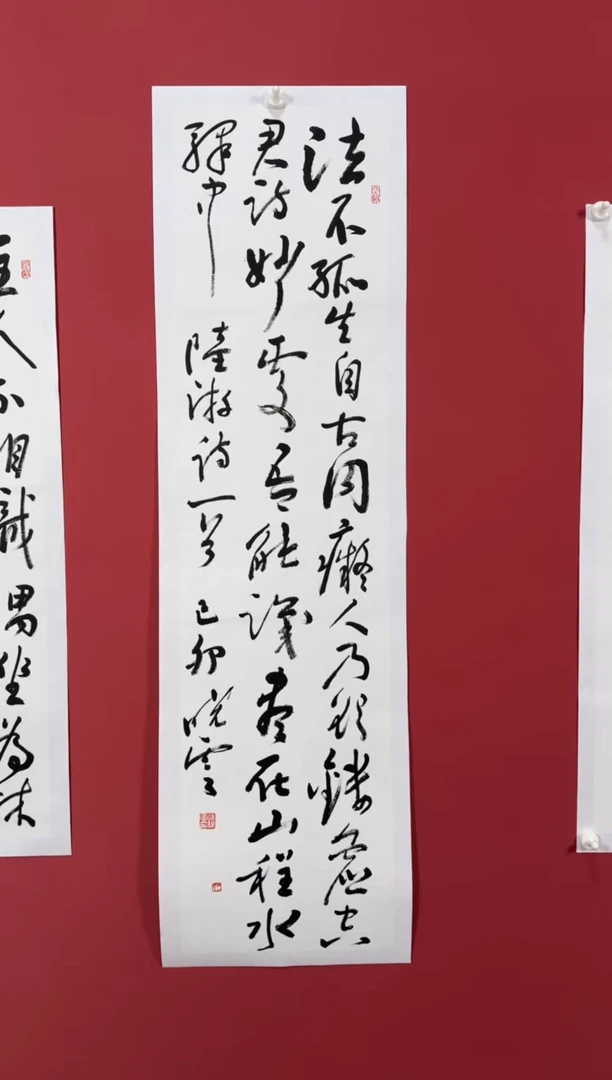 法不孤生自古同癡人乃欲鏤虛空
君詩妙處吾能識盡在山程水
驛中 陸游詩一首 己卯 曉雲
主人不相識偶坐為林